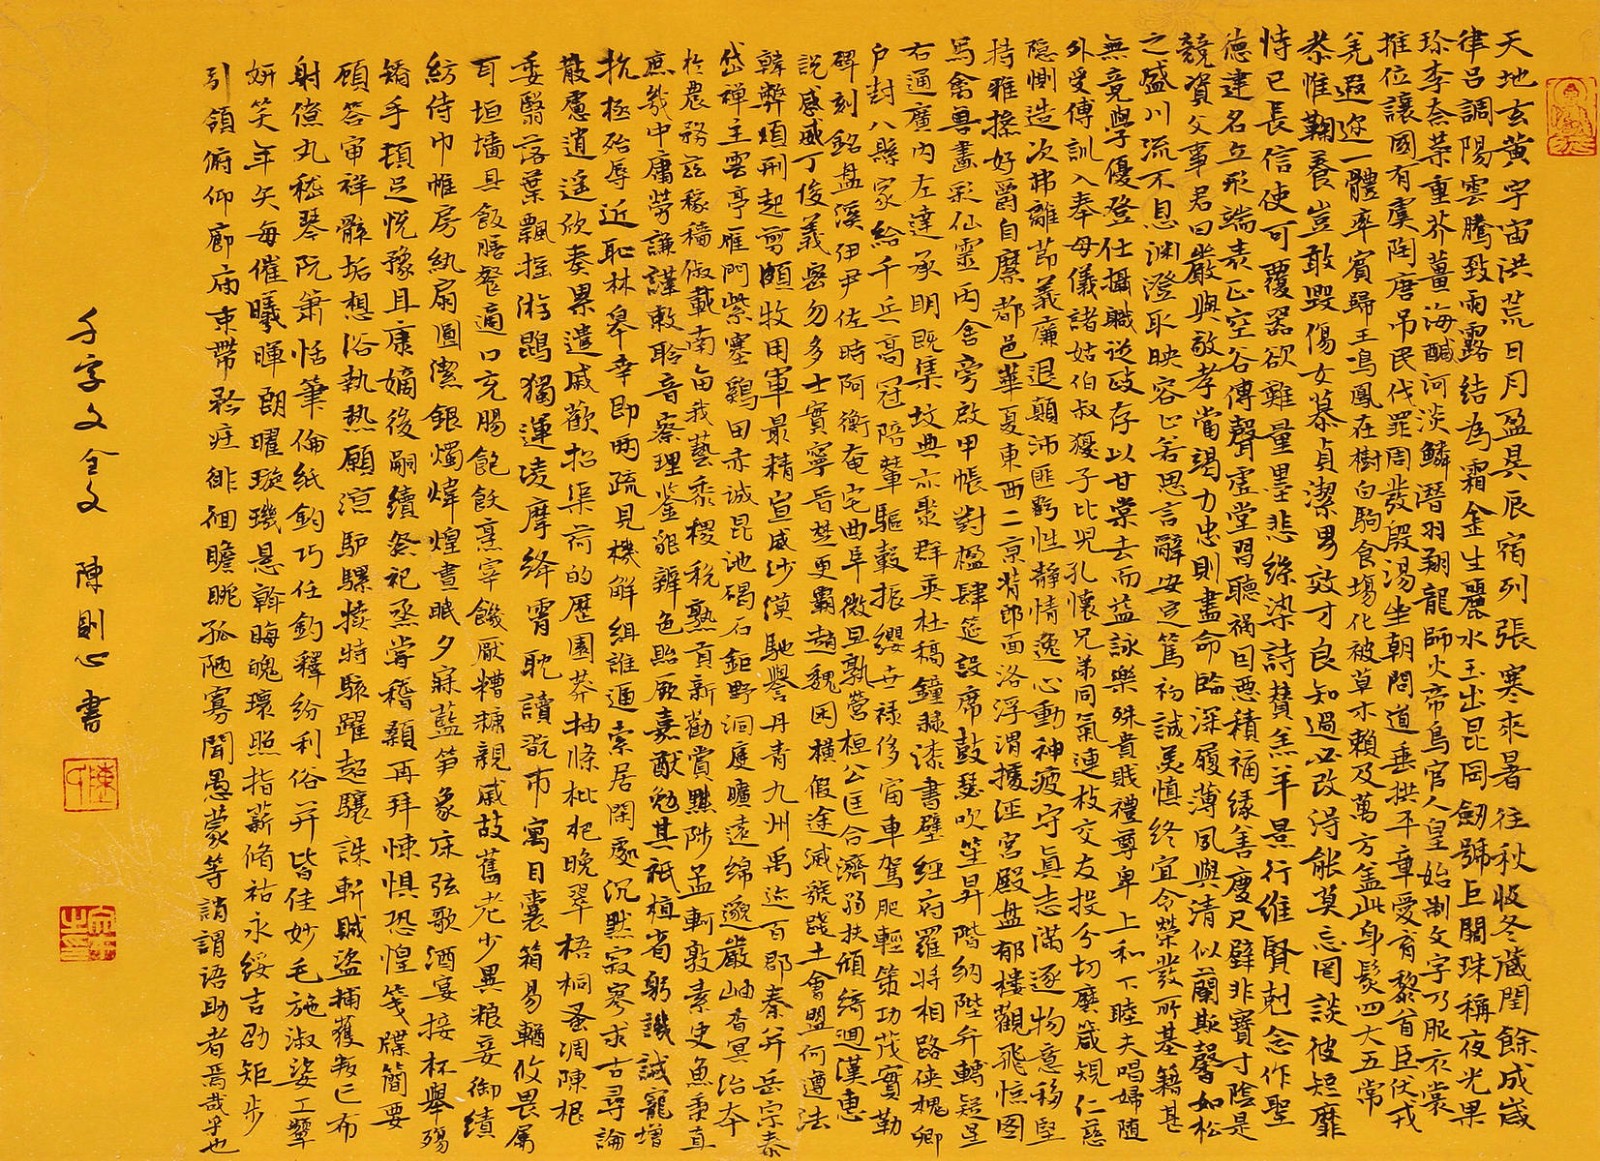 天地玄黄宇宙洪荒日月盈昃辰宿列張寒來暑往秋收冬藏閏餘成歲
律吕調陽雲騰致雨露結為霜金生麗水玉出昆岡劒號巨闕珠稱夜光果
珍李柰菜重芥薑海鹹河淡鱗潛羽翔龍師火帝鳥官人皇始制文字乃服衣裳
推位讓國有虞陶唐吊民伐罪周發殷湯坐朝問道垂拱平章愛育黎首臣伏戎
羌遐迩一體率賓歸王鳴鳳在樹白駒食場化被草木賴及萬方盖此身髮四大五常
恭惟鞠養豈敢毀傷女慕貞潔男效才良知過必改得能莫忘罔談彼短靡
恃己長信使可覆器欲難量墨悲絲染詩賛羔羊景行維賢剋念作聖
德建名立形端表正空谷傳聲虛堂習聽禍因惡積福緣善慶尺璧非寶寸陰是
競資父事君曰嚴與敬孝當竭力忠則盡命臨深履薄夙興清似蘭斯馨如松
之盛川流不息淵澄取映容止若思言辭安定篤初誠美慎終宜令榮發所基籍甚
無竟學優登仕攝職從政存以甘棠去而益詠樂殊貴賤禮尊卑上和下睦夫唱婦随
外受傅訓入奉母儀諸姑伯叔猶子比兒孔懷兄弟同氣連枝交友投分切磨箴規仁慈
隐惻造次弗離節義廉退顛沛匪虧性静情逸心動神疲守真志滿逐物意移堅
持雅操好爵自縻都邑華夏東西二京背邙面洛浮渭據涇宮殿盤郁樓觀飛驚图
寫禽獸畫彩仙靈丙舍旁啟甲帳對楹肆筵設席鼓瑟吹笙昇階納陛弁轉疑星
右通廣内左達承明既集墳典亦聚群英杜稿鐘隸漆書壁經府羅將相路俠槐卿
户封八縣家給千兵高冠陪輦驅轂振纓世禄侈富車駕肥輕策功茂實勒
碑刻銘磻溪伊尹佐時阿衡奄宅曲阜微旦孰營桓公匡合濟弱扶傾綺迴漢惠
説感武丁俊義密勿多士實寧晉楚更霸趙魏困横假途滅虢踐土會盟何遵法
韓弊煩刑起翦頗牧用軍最精宣威沙漠馳譽丹青九州禹迹百郡秦并岳宗泰
岱禅主雲亭雁門紫塞鷄田赤誠昆池碣石鉅野洞庭曠遠綿邈巖岫杳冥治本
於農務兹稼穡俶載南畝我藝黍稷税熟貢新勸賞黜陟孟軻敦素史魚秉直
庶幾中庸勞謙謹敕聆音察理鉴貌辨色貽厥嘉猷勉其祗植省躬譏誡寵增
抗極殆辱近恥林皋幸即兩疏見機解組誰逼索居閑處沉默寂寥求古尋論
散慮逍遥欣奏累遣戚歡招渠荷的歷園莽抽條枇杷晚翠梧桐蚤凋陳根
委翳落葉飄摇游鵾獨運凌摩絳霄耽讀翫市寓目囊箱易輶攸畏屬
耳垣墻具飯膳餐適口充腸飽飫烹宰饑厭糟糠親戚故舊老少異粮妾御績
紡侍巾帷房紈扇圓潔銀燭煒煌晝眠夕寐藍筍象床弦歌酒宴接杯舉殤
矯手頓足悦豫且康嫡後嗣續祭祀烝嘗稽顙再拜悚懼恐惶箋牒簡要
顧答审祥骸垢想浴執熱願凉驴騾犢特駭躍超驤誅斬賊盗捕獲叛亡布
射僚丸嵇琴阮箫恬筆倫紙鈞巧任釣釋紛利俗并皆佳妙毛施淑姿工顰
妍笑年矢每催曦暉朗曜璇璣懸斡晦魄環照指薪脩祜永綏吉劭矩步
引領俯仰廊廟束帶矜莊徘徊瞻眺孤陋寡聞愚蒙等誚謂语助者焉哉乎也
千字文全文 陳則心書